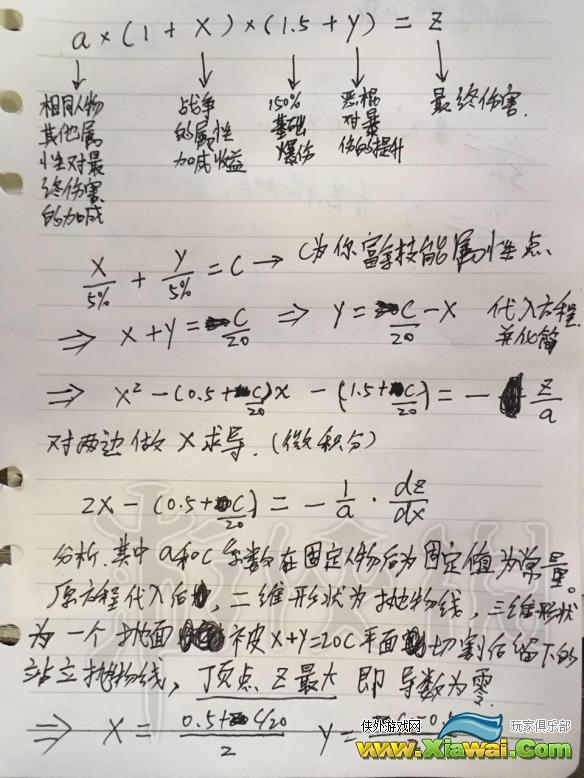 a × (1 + X) × (1.5 + y) = Z
相同人物其他属性对最终伤害的加成
战争的属性加成收益
150%基础爆伤
恶棍对最伤的提升
最终伤害.
X/5% + Y/5% = C → C为你富余技能属性点.
⇒ X+Y = C/20 ⇒ Y = C/20 - X 代入方程并化简
⇒ X² - (0.5 + C/20)X - (1.5 + C/20) = - Z/a
对两边做X求导. (微积分)
2X - (0.5 + C/20) = - 1/a · dz/dx
分析.其中a和C系数在固定人物后为固定值为常量。
原方程代入后, 二维形状为抛物线, 三维形状
为一个抛面 被X+Y=20C平面切割后留下的
站立抛物线, 顶点Z最大 即 导数为零.
⇒ X = (0.5 + C/20)/2 Y =
侠外游戏网
玩家俱乐部
www.Xiawai.Com